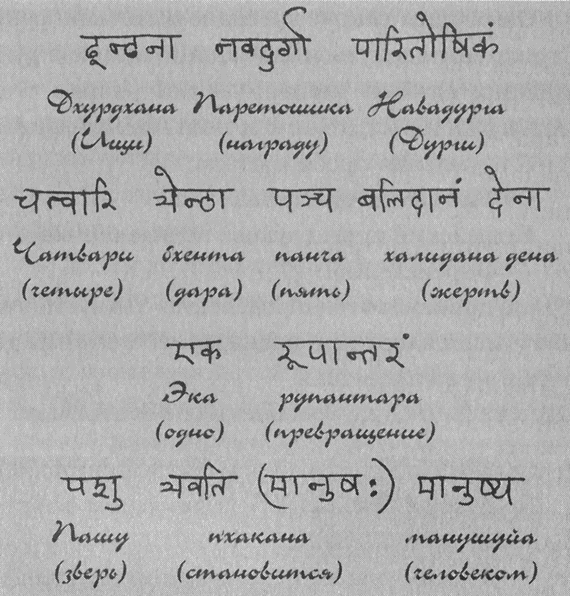 ढून्ढना नवदुर्गा पारितोषिकं
Дхурдхана Паретошика Навадурга
(Ищи) (награду) (Дурги)
चत्वारि भेन्ठा पञ्च बलिदानं देना
Чатвари бхента панча халидана дена
(четыре) (дара) (пять) (жертв)
एक रूपान्तरं
Эка рупантара
(одно) (превращение)
पशु भवति (मानुषः) मानुष्य
Пашу пхакана манушуйа
(зверь) (становится) (человеком)